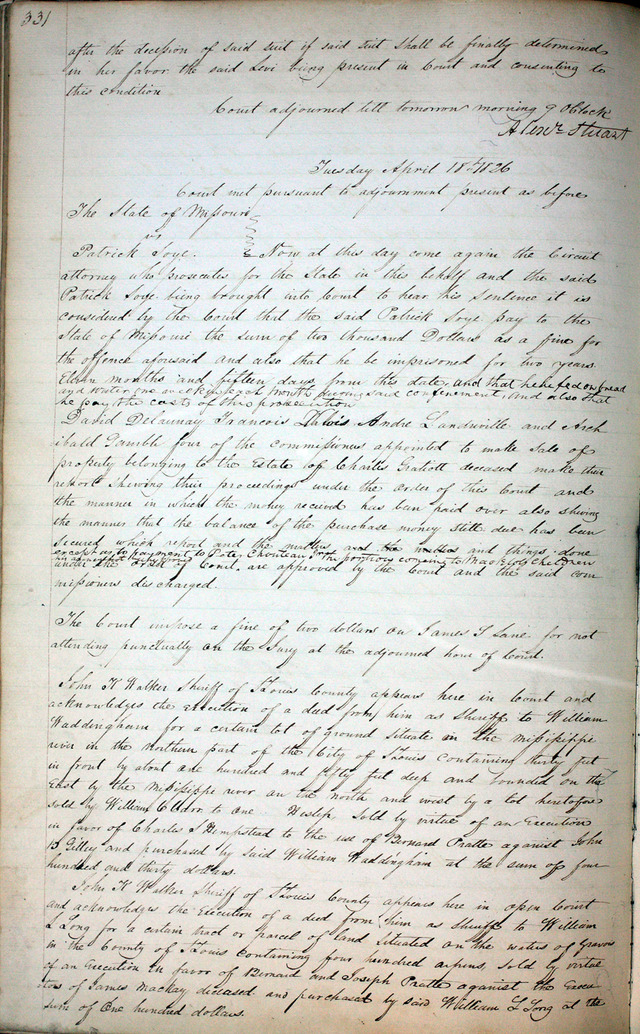 331
after the decission of said suit if said suit shall be finally determined
in her favor the said Levi being present in Court and consenting to
this condition
Court adjourned till tomorrow morning 9 OClock
Alexr Stuart
Tuesday April 18th 1826
Court met pursuant to adjournment present as before
The State of Missouri
vs
Patrick Joye. Now at this day come again the Circuit
attorney who prosecutes for the State in this behalf and the said
Patrick Joye being brought into Court to hear his sentence it is
considered by the Court that the said Patrick Joye pay to the
State of Missouri the sum of two thousand Dollars as a fine for
the offence aforesaid and also that he be imprisoned for two years
Eleven months and fifteen days from this date, and that he be fed on bread
and water, for one week in each month during said confinement, and also that
he pay the costs of this prosecution
David Delaunay Francois Andre Landriville and Arch
ibald Gamble four of the commissioners appointed to make sale of
property belonging to the Estate of Charles deceased make their
report shewing their proceedings under the order of this Court and
the manner in which the money received has been paid over also shewing
the manner that the balance of the purchase money still due has been
Secured which report and the matters and things done
except as to payment to Peter Chouteau, for portions coming to children
under the order of Court, are approved by the Court and the said com
missioners discharged.
The Court impose a fine of two dollars on James S Lane for not
attending punctually on the Jury at the adjourned hour of Court.
John K Walker Sheriff of St Louis County appears here in Court and
acknowledges the execution of a deed from him as Sheriff to William
Waddingham for a certain lot of ground situate on the Missisippi
river in the northern part of the City of St Louis containing thirty feet
in front by about one hundred and fifty feet deep and bounded on the
East by the Missisippi river on the north and west by a lot heretofore
sold by William C Carr to one Heslep, Sold by virtue of an Execution
in favor of Charles S Hempstead to the use of Bernard Pratte aganist John
B Gilley and purchased by said William Waddingham at the sum of four
hundred and thirty dollars.
John K Walker Sheriff of St Louis County appears here in open Court
and acknowledges the execution of a deed from him as sheriff to William
L Long for a certain tract or parcel of land situated on the waters of Gravois
in the County of St Louis containing four hundred arpens, sold by virtue
of an Execution in favor of Bernard and Joseph Pratte aganist the Execu
tors of James Mackay deceased and purchased by said William L Long at the
sum of One hundred dollars.